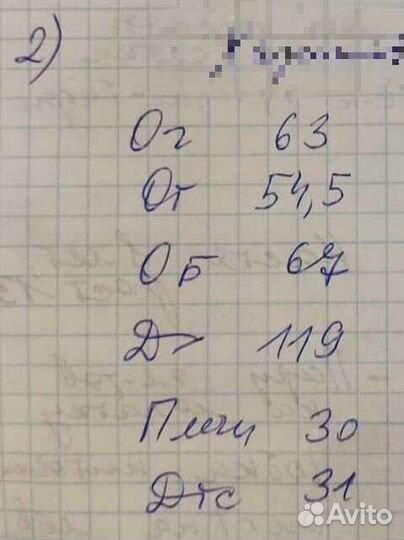 2)
Ог 63
От 54,5
Об 67
Дг 119
Плечи 30
Дтс 31
Avito